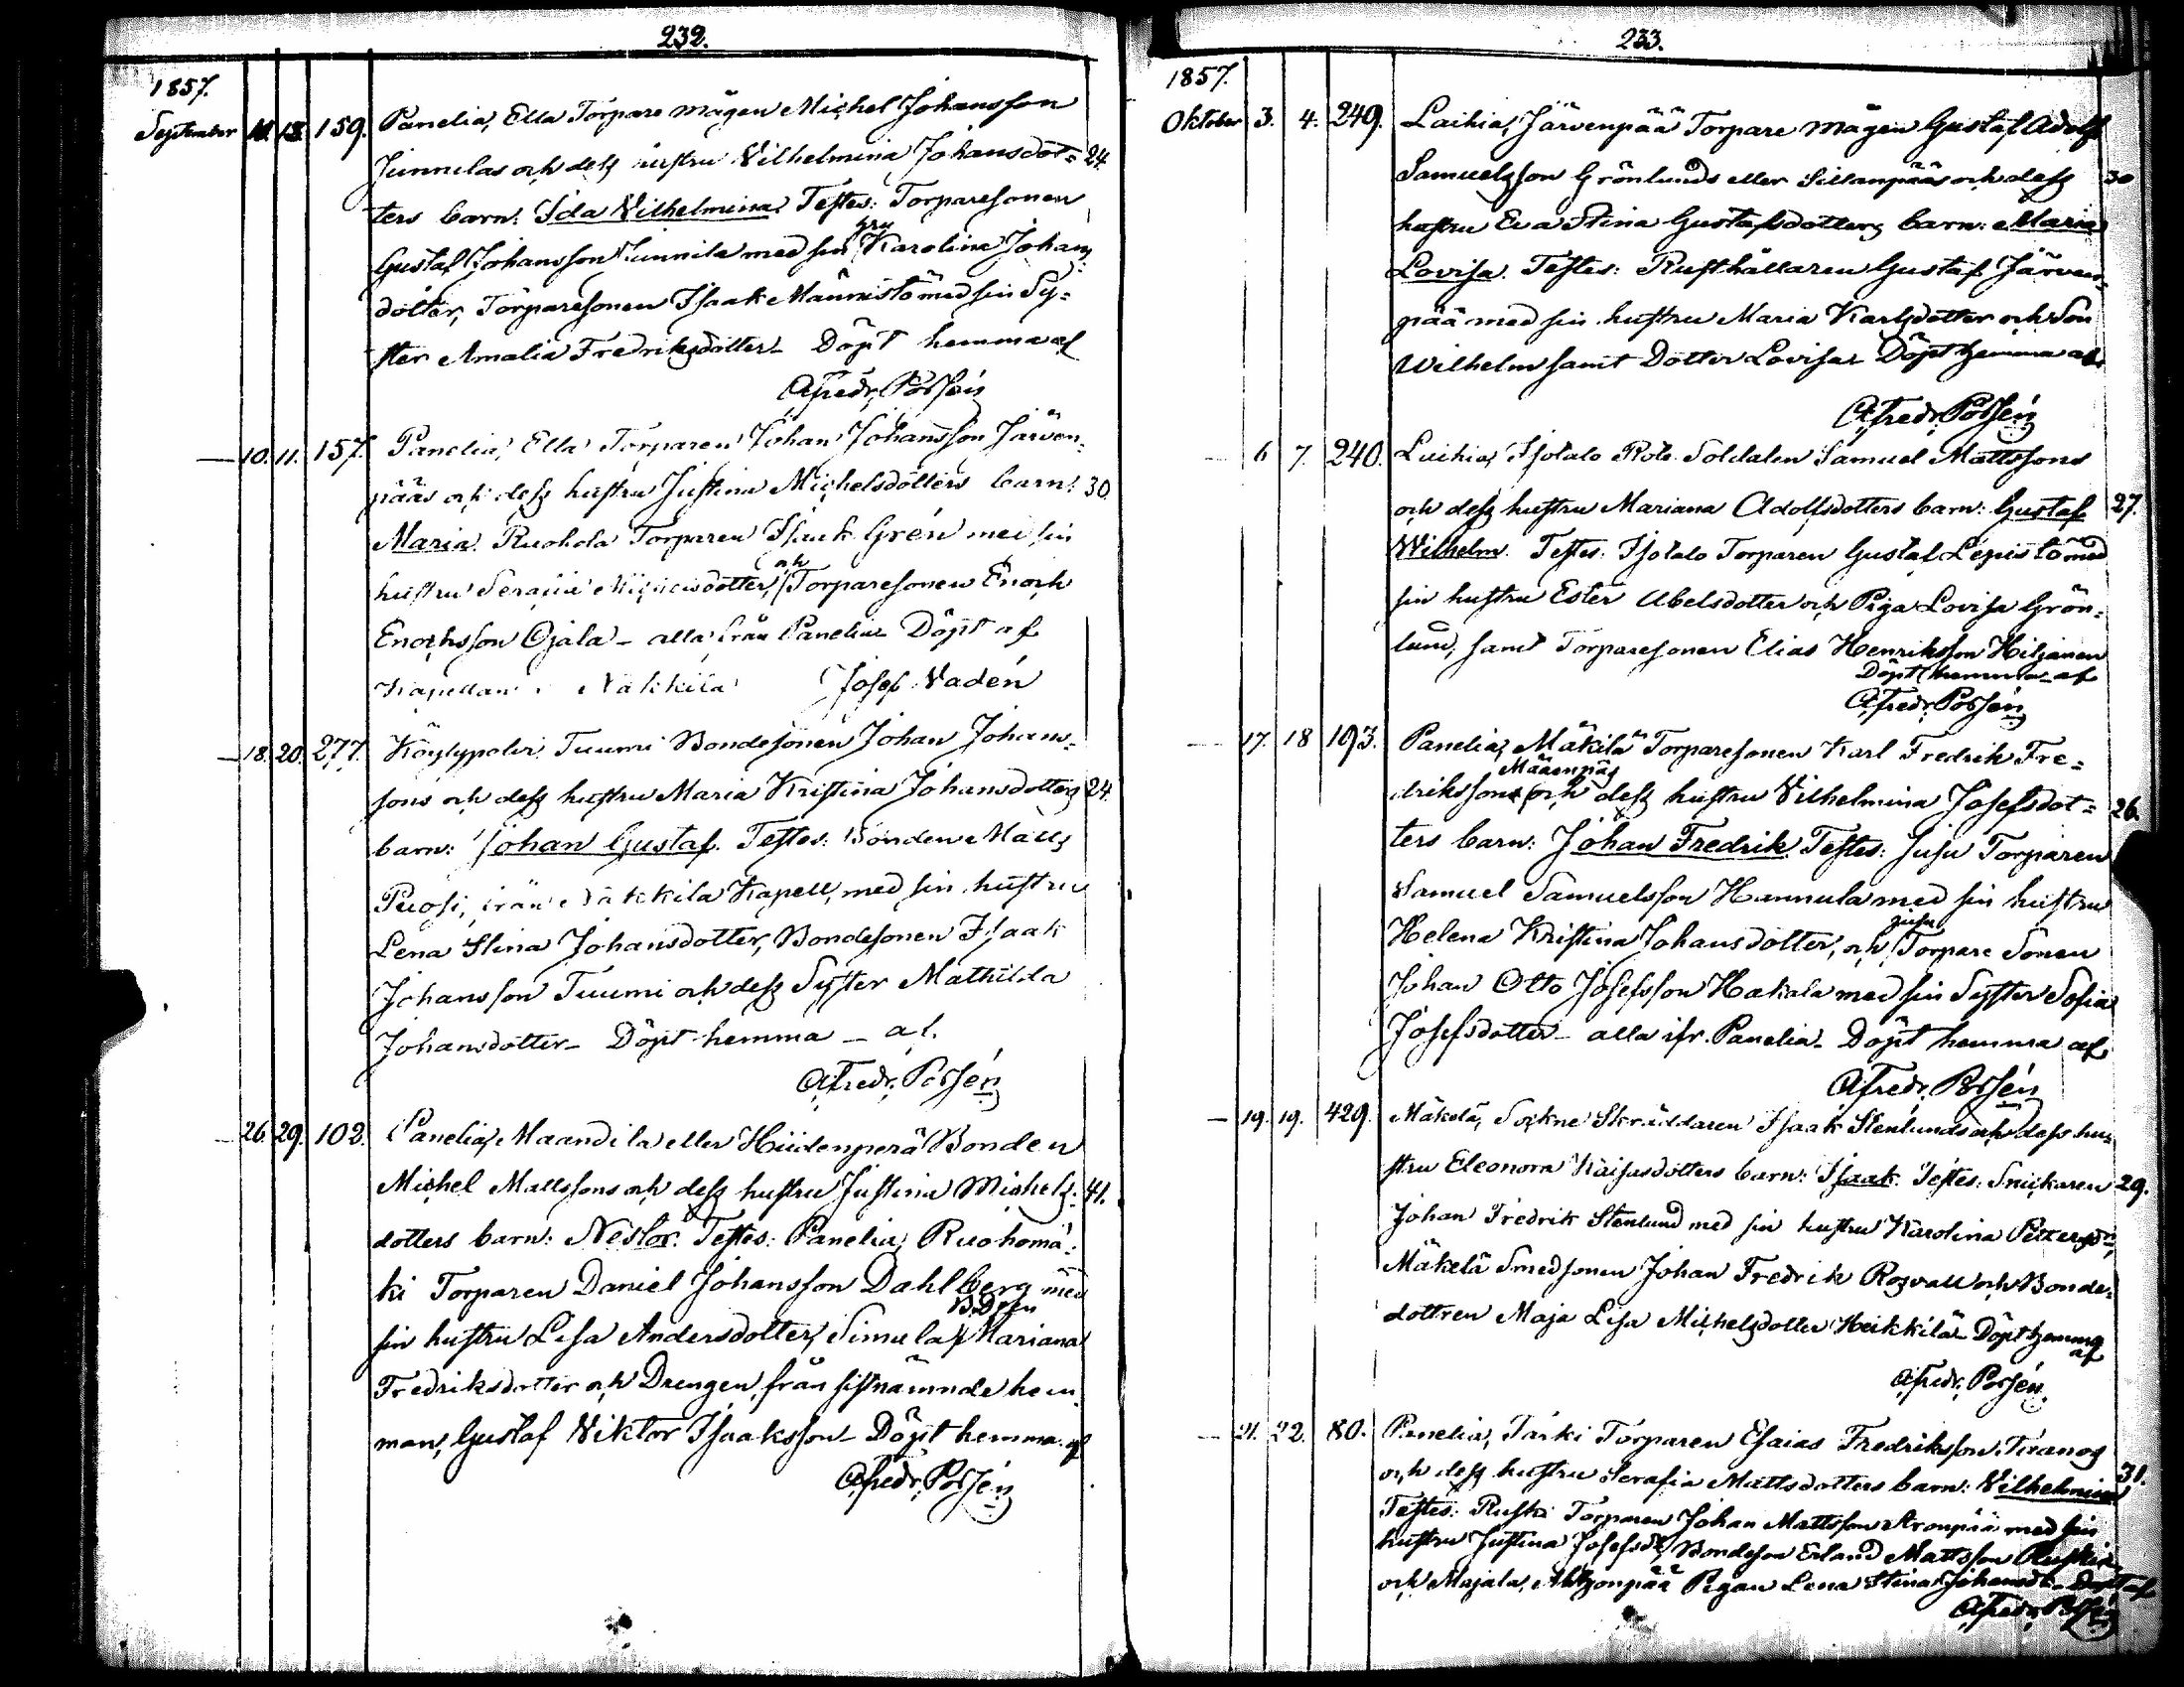 232.
1857.
September 11. 13. 159. Panelia, Ella Torpare mågen Michel Johansson
Junnilas och deß hustru Vilhelmina Johansdot= 24.
ters barn: Ida Vilhelmina. Testes: Torparesonen
Gustaf Johansson Junnila med sin hru Karolina Johans
dotter, Torparesonen Isaak Männistö med sin Sy=
ster Amalia Fredriksdotter_ Döpt hemma af
A. Fredr. Possén
— 10. 11. 157. Panelia, Ella Torparen Johan Johansson Järven=
pääs och deß hustru Justina Michelsdotters barn: 30.
Maria. Ruohola Torparen Isaak Grén med sin
hustru Serafia dotter, och Torparesonen Enoch
Enochsson Ojala_ alla från Panelia_ Döpt af
Kapellan Nakkila Josef Vadén
— 18. 20. 277. Köylypolvi Tuumi Bondesonen Johan Johans=
sons och deß hustru Maria Kristina Johansdotters 24.
barn: Johan Gustaf. Testes: Bonden Matts
Puosi, från Nakkila Kapell, med sin hustru
Lena Stina Johansdotter, Bondesonen Isaak
Johansson Tuumi och deß Syster Mathilda
Johansdotter_ Döpt hemma _ af.
A. Fredr. Possén
— 26. 29. 102. Panelia, Maandila eller Hiidenperä Bonden
Michel Mattssons och deß hustru Justina Michels= 41.
dotters barn: Nestor. Testes: Panelia, Ruohomä=
ki Torparen Daniel Johansson Dahlberg med
sin hustru Lisa Andersdotter, Simula Mariana
Fredriksdotter och Drengen, från sistnämnde hem
man, Gustaf Viktor Isaksson_ Döpt hemma af
A. Fredr. Possén
233.
1857.
Oktober 3. 4. 249. Laihia, Järvenpää Torpare mågen Gustaf Adolf
Samuelsson Grönlunds eller Sillanpääs och deß 30
hustru Eva Stina Gustafsdotters barn: Maria
Lovisa. Testes: Rusthållaren Gustaf Järven=
pää med sin hustru Maria Karlsdotter och Son
Wilhelm samt Dotter Lovisa_ Döpt hemma af
A. Fredr. Possén
— 6 7. 240. Laihia, Isotalo Rote Soldaten Samuel Mattssons
och deß hustru Mariana Adolfsdotters barn: Gustaf 27.
Wilhelm. Testes: Isotalo Torparen Gustaf Lepistö med
sin hustru Ester Abelsdotter och Piga Lovisa Grön=
lund, samt Torparesonen Elias Henriksson Hiljanen
Döpt hemma af
A. Fredr. Possén
— 17. 18 193. Panelia, Mäkilä Torparesonen Karl Fredrik Fre=
Määenpää
drikssons och deß hustru Vilhelmina Josefsdot= 26.
ters barn: Johan Fredrik. Testes: Juju Torparen
Samuel Samuelsson Hannula med sin hustru
Helena Kristina Johansdotter, och Juju Torpare Sonen
Johan Otto Josefsson Hakala med sin Syster Sofia
Josefsdotter_ alla ifr. Panelia_ Döpt hemma af
A. Fredr. Possén
— 19. 19. 429. Mäkelä, Sockne Skräddaren Isaak Stenlunds och deß hu=
stru Eleonora Kaisasdotters barn: Isaak. Testes: Snickaren 29.
Johan Fredrik Stenlund med sin hustru Karolina
Mäkelä Smedsonen Johan Fredrik Rosvall och Bonde=
dottren Maja Lisa Michelsdotter Heikkilä_ Döpt hemma
af
A. Fredr. Possén.
— 21. 22. 80. Panelia, Torparen Esaias Fredriksson
och deß hustru Serafia Mattsdotters barn: Vilhelmina 31.
Testes: Ruski Torparen Johan Mattsson med sin
hustru Justina Josefsdr, Bondeson Erland Mattsson Ruski
och Majala, Pigan Lena Stina Johansdr_ Döpt af
A. Fredr. Possén